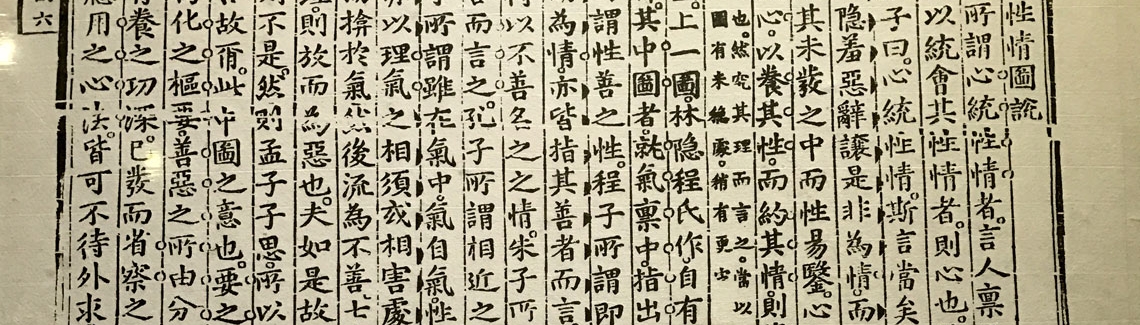 性情圖說
所謂心統性情者。言人稟
以統會其性情者。則心也。
子曰。心統性情。斯言當矣
隐羞惡辭讓是非為情。而
其未發之中而性易鑿。心
心。以養其性。而約其情則
也。然究其理而言之。當以
圖有未穩處。稍有更
上一圖。林隐程氏作。自有
其中圖者。就氣稟中。指出
謂性善之性。程子所謂即
為情。亦皆指其善者而言
以不善名之之情。朱子所
而言之。孔子所謂相近之
子所謂雖在氣中。氣自氣性
以理氣之相須或相害處
揜於氣然後流為不善七
則放而為惡也。夫如是故
不是。然則孟子子思。所以
故爾。此中圖之意也。要之
化之樞要。善惡之所由分
養之功深。已發而省察之
應用之心法。皆可不待外求
六